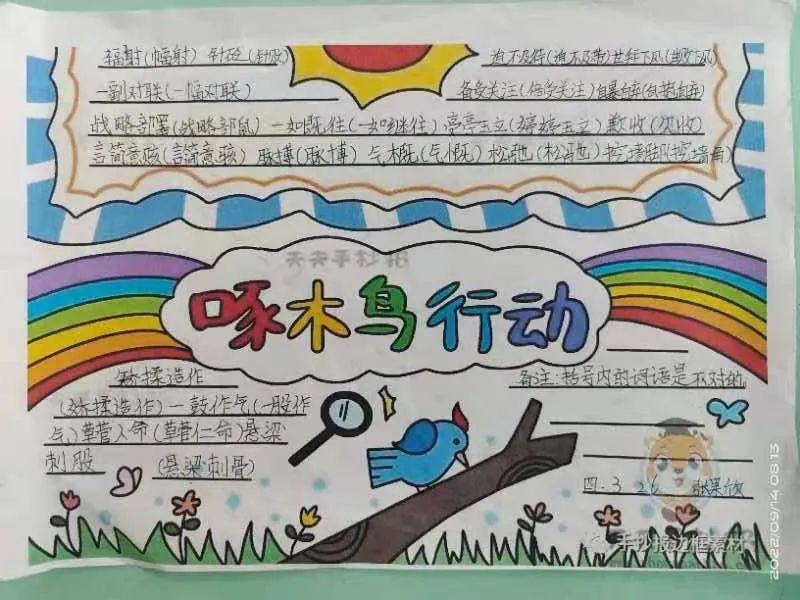 辐射(幅射) 针砭(针贬)
迫不及待(迫不及带)甘拜下风
一副对联(一幅对联)
备受关注(倍受关注)自暴自弃
战略部署(战略部鼠)一如既往(一如继往)亭亭玉立(婷婷玉立)歉收(欠收)
言简意赅(言简意骇)脉搏(脉博)气概(气慨)松弛(松驰)挖墙脚(挖墙角)
夫夫手抄报
啄木鸟行动
矫揉造作
(娇揉造作)一鼓作气(一股作
气)草菅人命(草管仁命)悬梁
刺股 (悬梁刺骨)
备注:括号内的词语是不对的
四.3 26
手抄报边框素材
2022/09/14 08:13